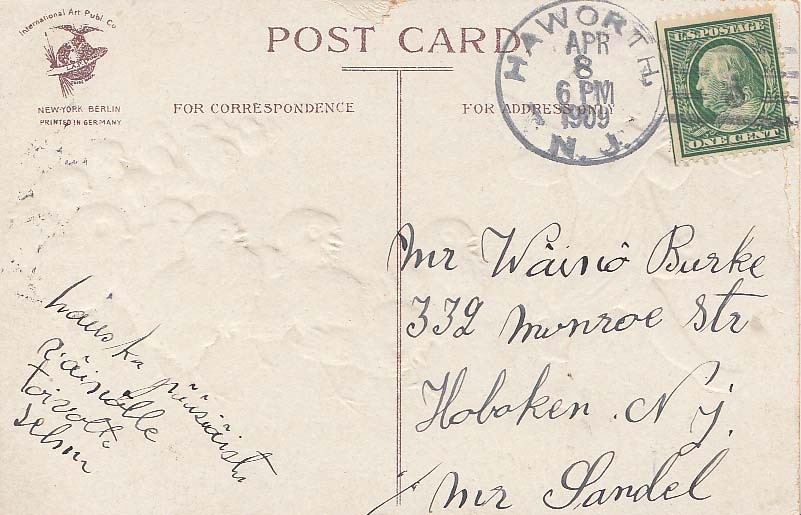 International Art Publ. Co
NEW-YORK BERLIN
PRINTED IN GERMANY
POST CARD
FOR CORRESPONDENCE
FOR ADDRESS ONLY
HAWORTH
APR
8
6 PM
1909
N. J.
U.S. POSTAGE
ONE CENT
Mr Wäinö Burke
339 Monroe Str
Hoboken. N J.
Mr Sandel
hauska pääsiäistä
toivotti